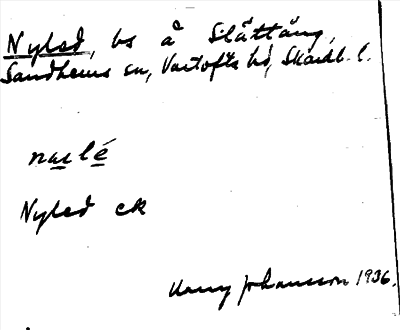 Nyled, bs å Slättäng,
Sandhems sn, Vartofta hd, Skarab. l.
naslé
Nyled ek
Harry Johansson 1936.